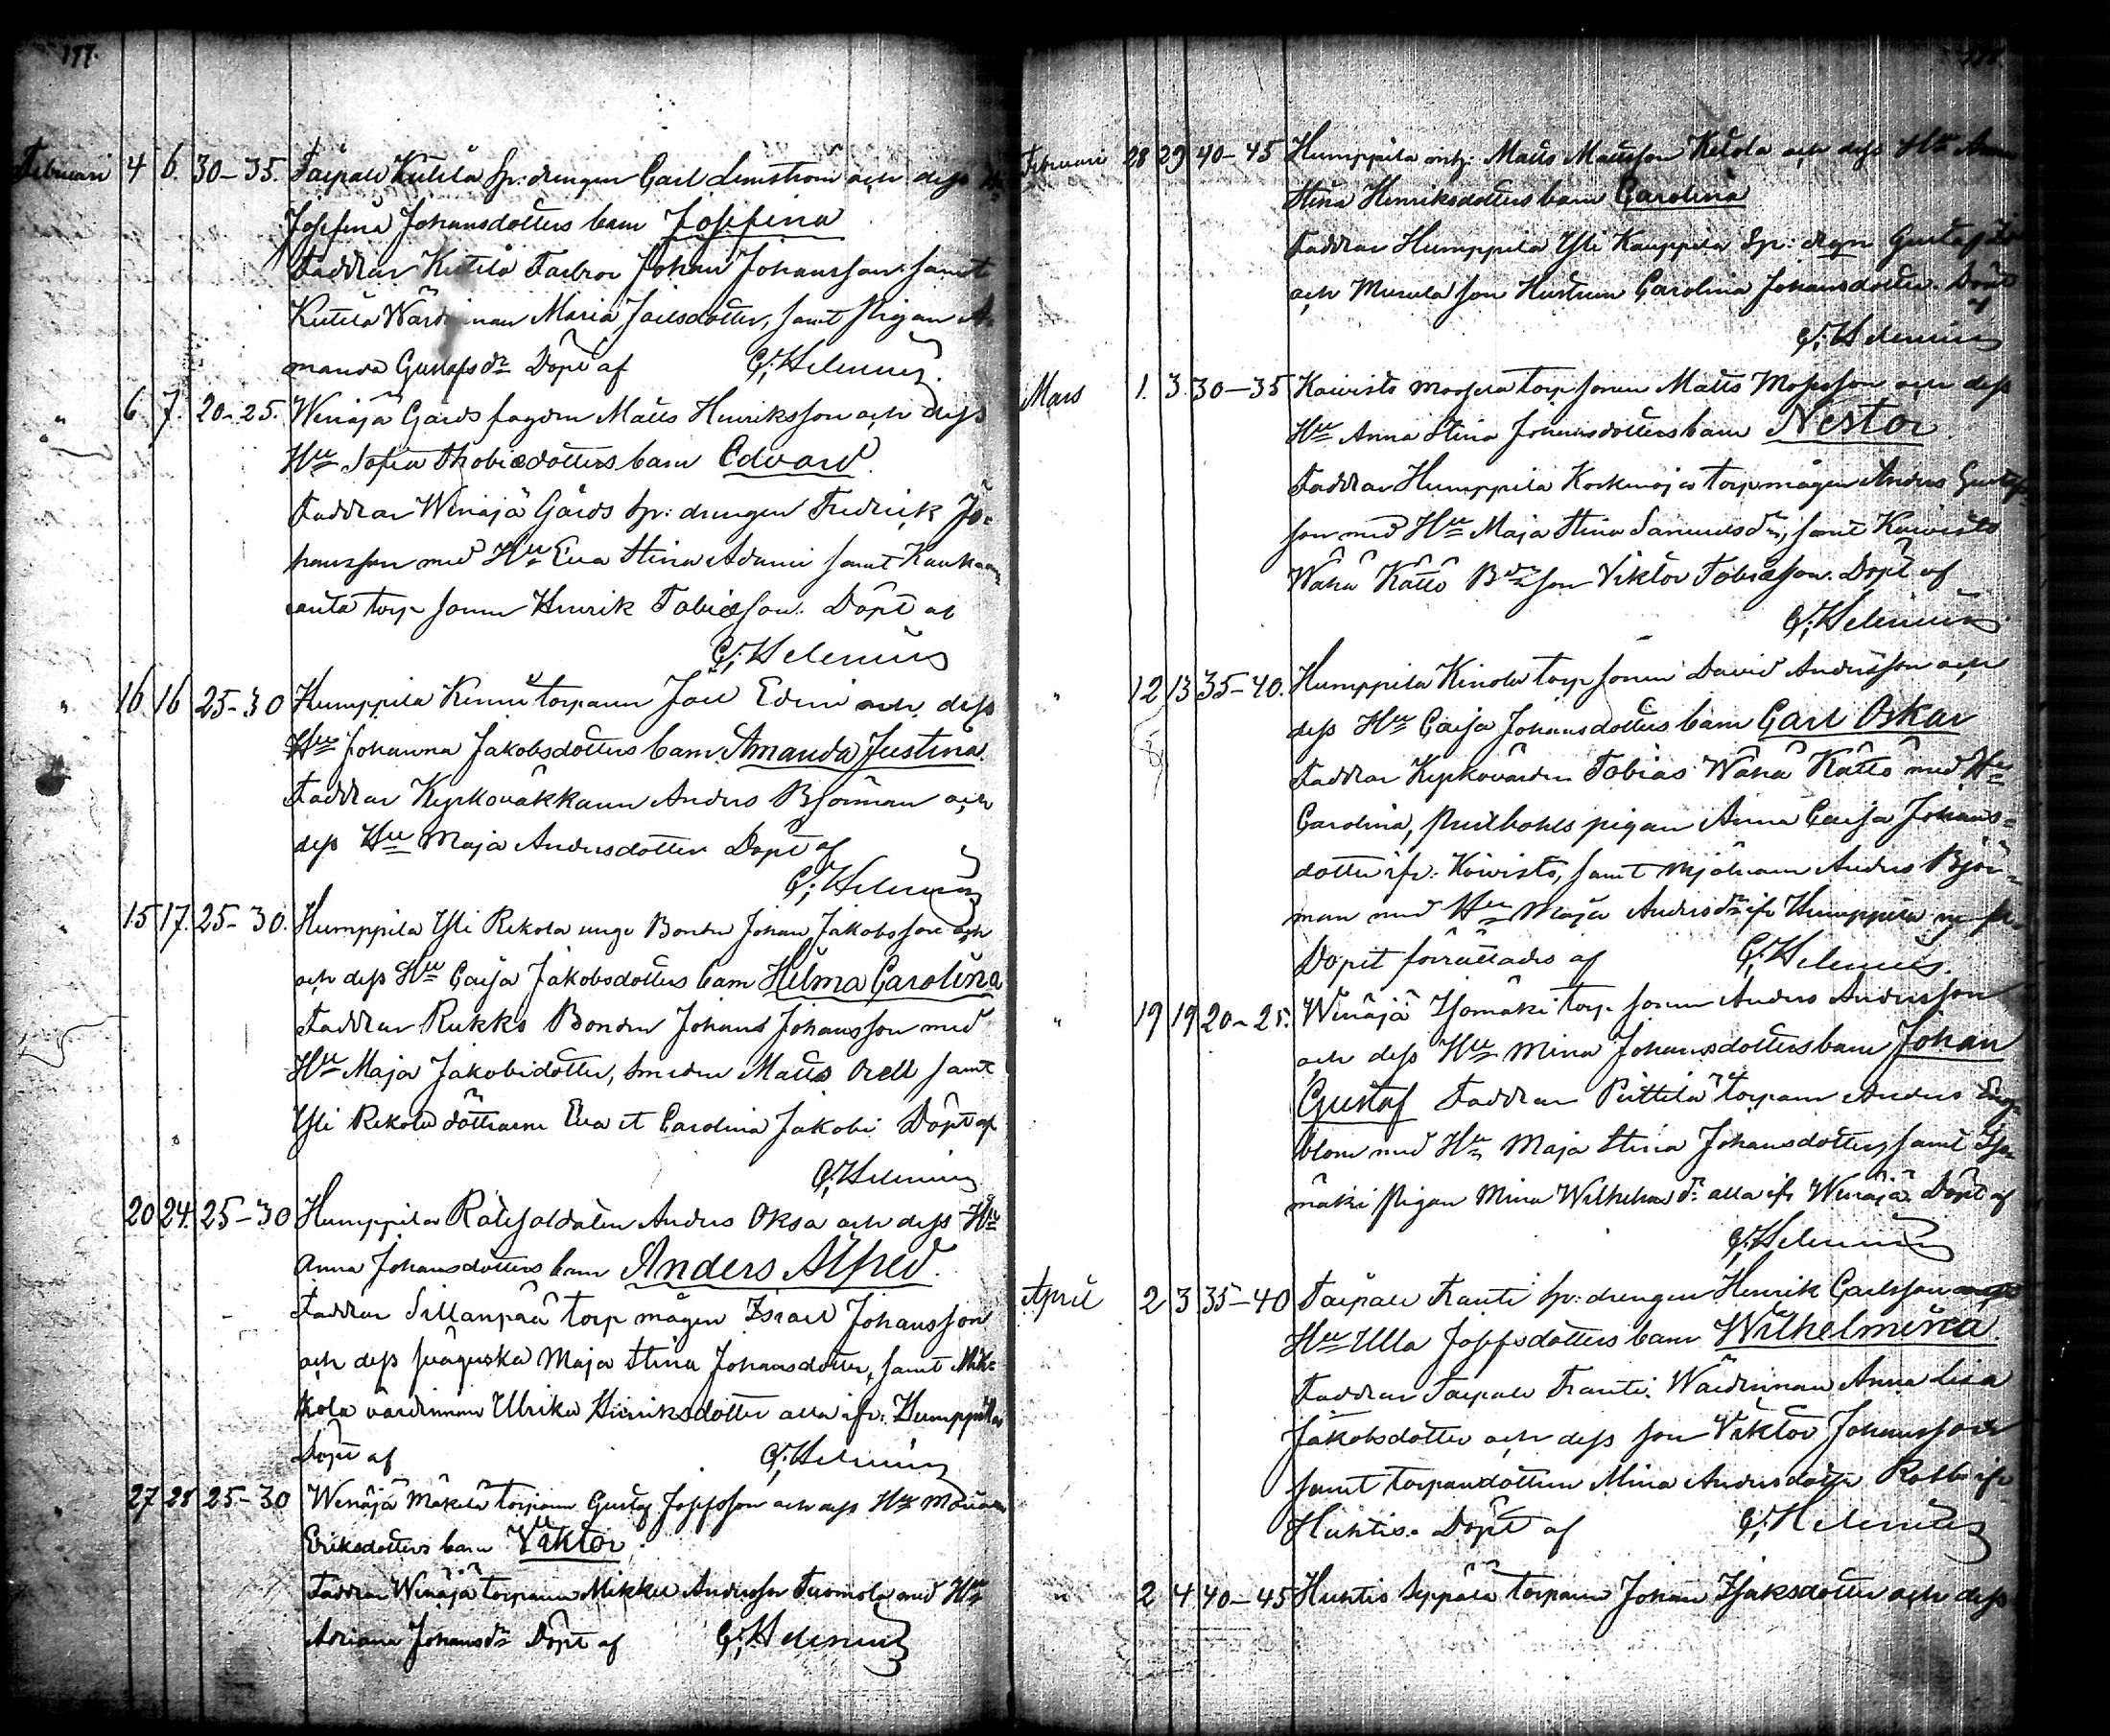 177.
Februari 4 6. 30-35. Taipale Kutila Sp: drengen Carl Lemström och dess
Josefina Johansdotters barn Josefina
Faddrar Kutila Farbror Johan Johansson samt
Kutila Wärdinnan Maria Joelsdotter, samt pigan A-
manda Gustafsdr Döpt af G. Helenius.
" 6. 7. 20-25. Winäjä Gårds fogden Matts Henriksson och dess
Hu Sofia Thobiædotters barn Edvard.
Faddrar Winäjä Gårds Sp: drengen Fredrick Jo=
hansson med Hu Eva Stina Adami samt
torp sonen Henrik Tobiæson. Döpt af
G. Helenius
" 16 16 25-30 Humppila Kinnu torparen Joel Edvin och dess
Hu Johanna Jakobsdotters barn Amanda Justina.
Faddrar Kyrkoväkkaren Anders Björnman och
dess Hu Maja Andersdotter Döpt af
G. Helenius
" 15 17. 25-30. Humppila Yli Rekola unge Bonden Johan Jakobsson och
och dess Hu Caisa Jakobsdotters barn Hilma Carolina
Faddrar Rukko Bonden Johans Johansson med
Hu Maja Jakobidotter, smeden Matts Orell samt
Yli Rekola döttrarne Eva et Carolina Jakobi Döpt af
G. Helenius
20 24. 25-30 Humppila Rotesoldaten Anders Oksa och dess Hu
Anna Johansdotters barn Anders Alfred.
Faddrar Sillanpää torp mågen Israel Johansson
och dess svägerska Maja Stina Johansdotter, samt Mik=
kola värdinnan Ulrika Henriksdotter alla ifr. Humppila
Döpt af G. Helenius
27 28 25-30 Winäjä Mäkilä torparen Gustaf Josefsson och dess Hu Maria
Eriksdotters barn Viktor.
Faddrar Winäjä torparen Mikkel Andersson Tuomola med Hu
Adriana Johansdr Döpt af G. Helenius
Februari 28 29 40-45 Humppila Matts Mattsson Ketola och dess Hu Anna
Stina Henriksdotters barn Carolina
Faddrar Humppila Yli Kauppila Sp: drgn Gustaf
och Murula son Hustrun Carolina Johansdotter. Döpt
af
G. Helenius
Mars 1. 3. 30-35 Koivisto torp sonen Matts Mosesson och dess
Hu Anna Stina Johansdotters barn Nestor.
Faddrar Humppila Korkenoja torpmågen Anders Gustaf
son med Hu Maja Stina Samuelsdr, samt Koivisto
Wähä Kättö Bdeson Viktor Tobiæson. Döpt af
G. Helenius.
" 12 13 35-40. Humppila Kinola torp sonen David Andersson och
dess Hu Caisa Johansdotters barn Carl Oskar
Faddrar Kyrkovärden Tobias Wähä Kättö med Hu
Carolina, pigan Anna Caisa Johans=
dotter ifr: Koivisto, samt mjölnaren Anders Björn=
man med Hu Maja Andersdr ifr Humppila
Dopet förrättades af G. Helenius.
" 19 19 20-25. Winäjä Isomäki torp sonen Anders Andersson
och dess Hu Mina Johansdotters barn Johan
Gustaf Faddrar Püttilä torparen Anders Eng
blom med Hu Maja Stina Johansdotter, samt Iso
mäki pigan Mina Wilhelmsdr alla ifr Winäjä. Döpt af
G. Helenius
April 2 3 35-40 Taipale Franti Sp: drengen Henrik Carlsson
Hu Ulla Josefsdotters barn Wilhelmina
Faddrar Taipale Franti Wärdinnan Anna Lisa
Jakobsdotter och dess son Viktor Johansson
samt torparedottern Mina Andersdotter ifr
Huhtis. Döpt af G. Helenius
" 2 4 40-45 Huhtis Seppälä torparen Johan Isaksdotter och dess